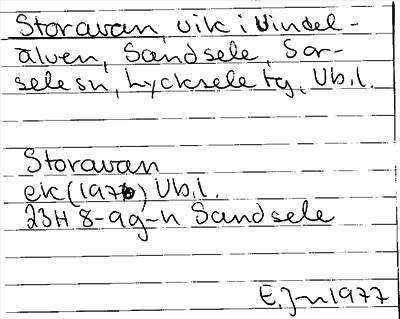 Storavan, vik i Vindel-
älven, Sandsele, Sor-
sele sn, Lycksele tg, Vb.l.
Storavan
ek (1976) Vb.l.
23H 8-9g-h Sandsele
E.J-n 1977